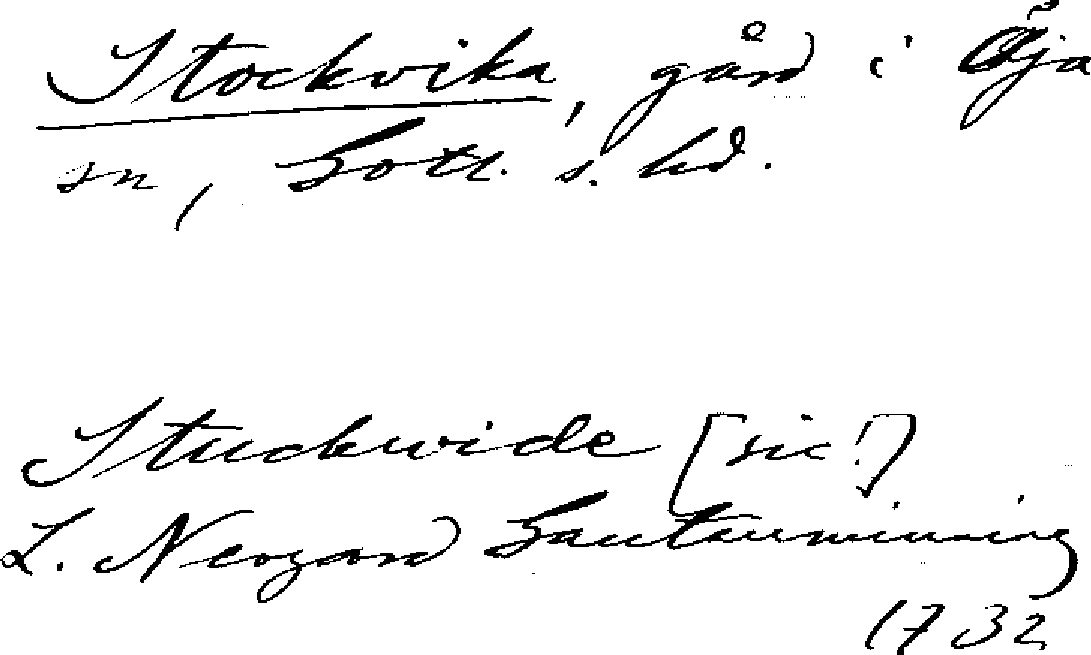 Stockvika, gård i Öja
sn, Gotl. s. hd.
Stuckvide [sic!]
L. Neogard Gautauminning
1732